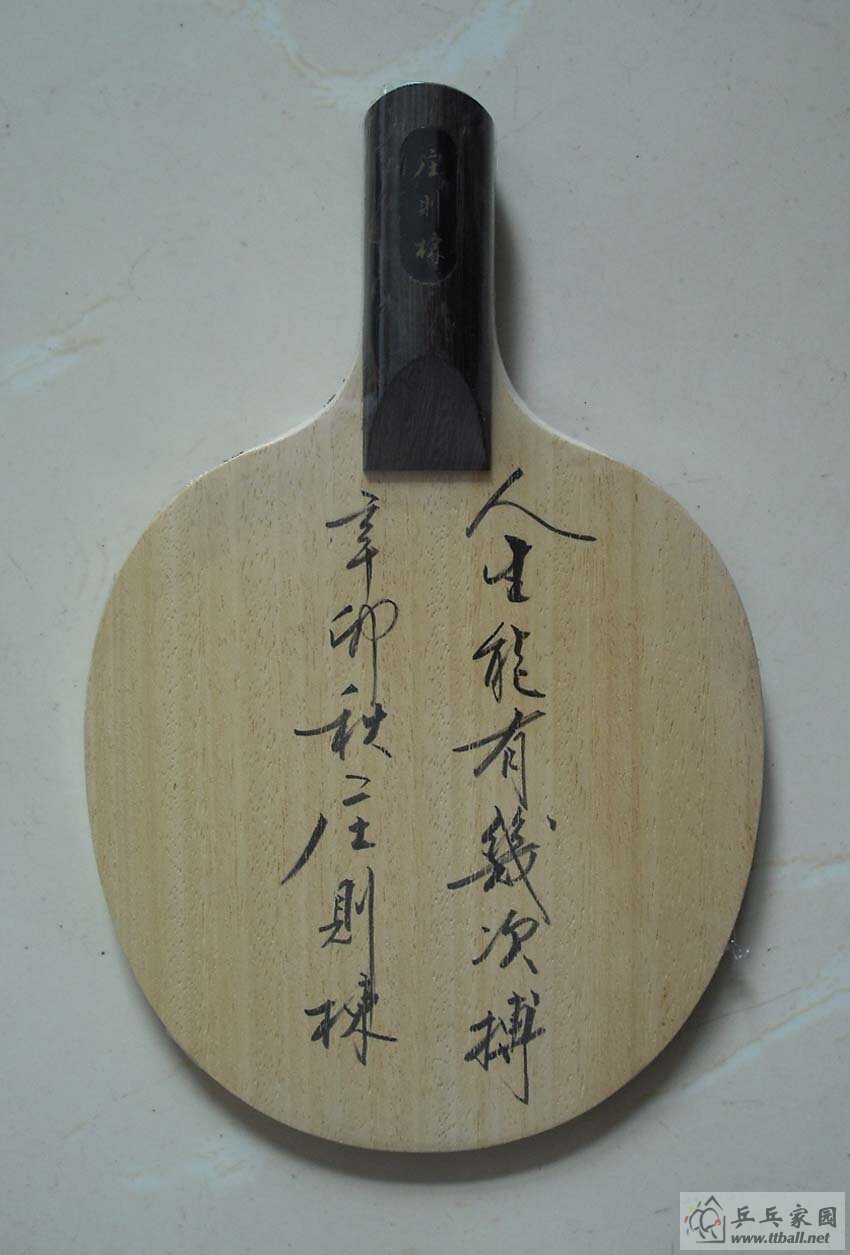 庄則棟
人生能有幾次搏
辛卯秋庄則棟
乒乓家园
www.ttball.net